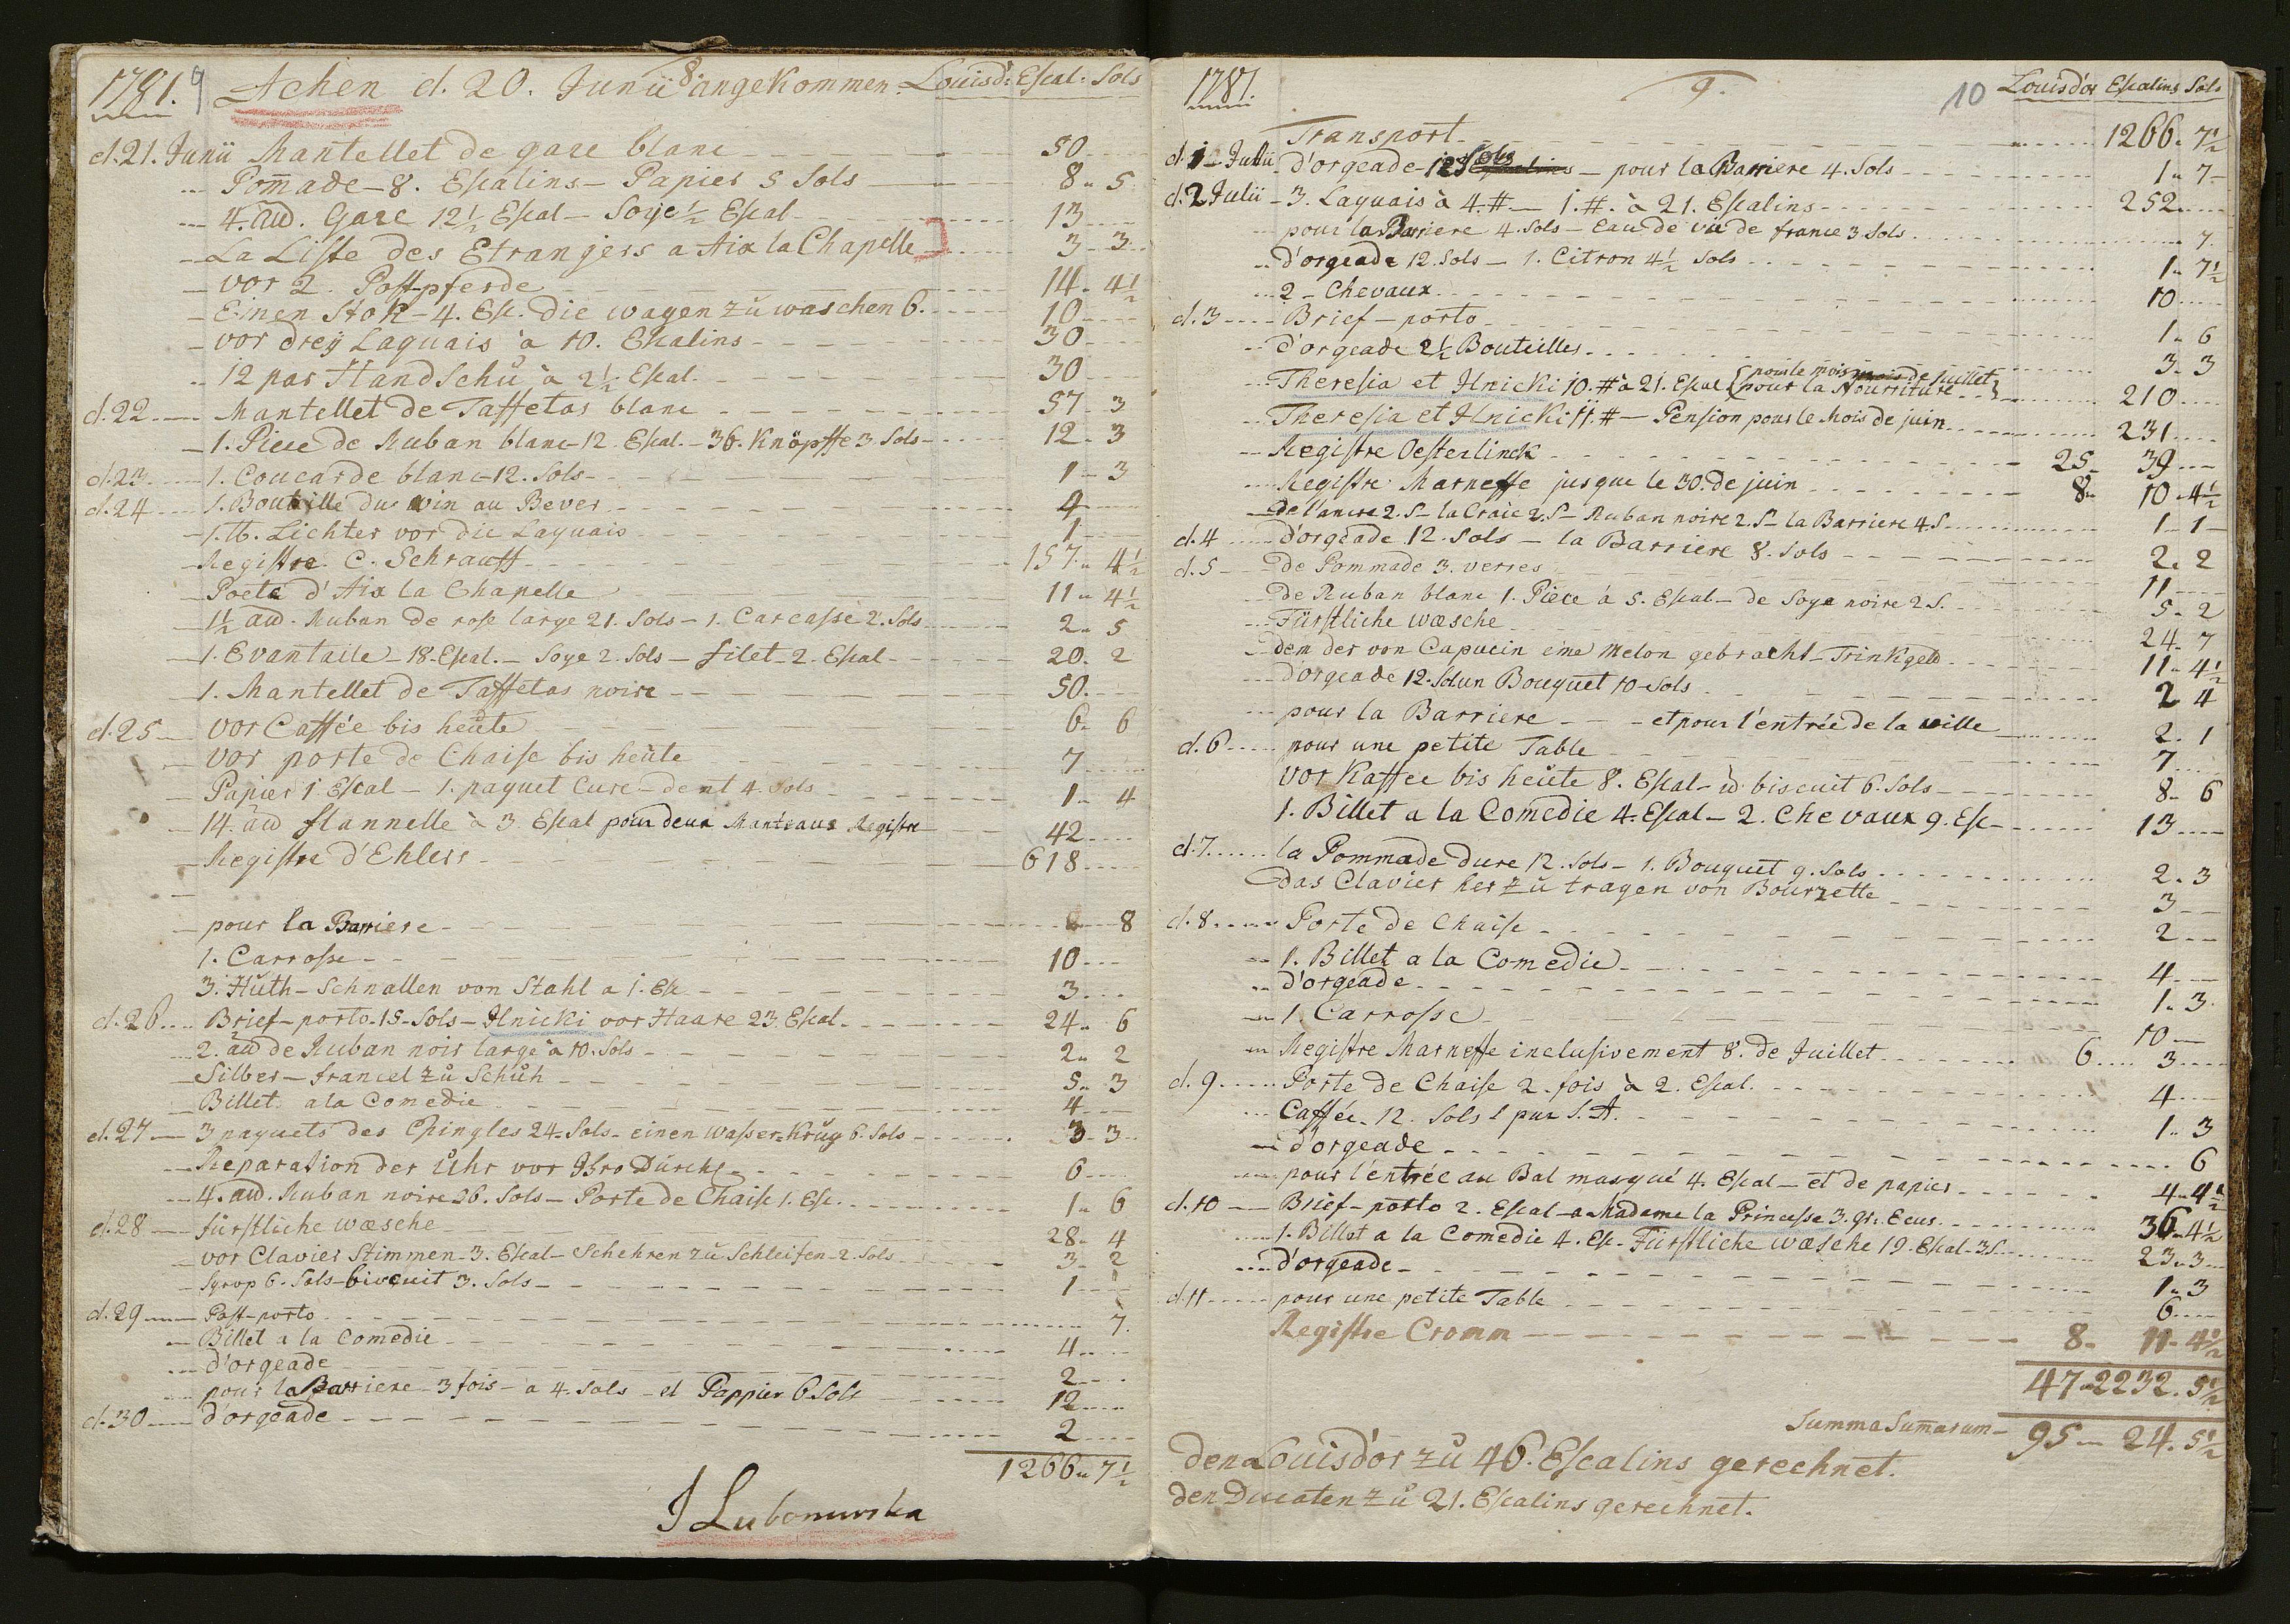 1781. 9 Achen d. 20. Junii 8. angekommen. Louisd: Escal: Sols
d. 21. Junii Mantellet de gaze blanc 50
Pom̄ade - 8. Escalins - Papier 5 Sols 8 " 5
4. aũ. Gaze 12½ Escal - Soye ½ Escal 13
La Liste des Etrangers a Aix la Chapelle 3 - 3
vor 2. Post-pferde 14 - 4½
Einen Stok - 4. Esc. Die wagen zu waschen 6. 10
vor drey Laquais à 10. Escalins 30
12 par Handschu à 2½ Escal. 30
d. 22 Mantellet de Taffetas blanc 57 - 3
1. Piece de Ruban blanc - 12 Escal. - 36. Knöpffe 3 Sols 12 - 3
d. 23 1. Coucarde blanc - 12. Sols 1 - 3
d. 24 1. Bouteille du vin au Bever 4
1. ℔. Lichter vor die Laquais 1
Registre C. Schrauff 157 " 4½
Poeta d'Aix la Chapelle 11 " 4½
1½ aũ. Ruban de rose large 21. Sols - 1. Carcasse 2. Sols 2 " 5
1. Evantaile - 18 - Escal. - Soye 2. Sols - filet - 2. Escal 20. 2
1. Mantellet de Taffetas noire 50
d. 25 vor Caffée bis heute 6 - 6
vor porte de Chaise bis heute 7
Papier 1 Escal - 1. paquet Cure-dent 4. Sols 1 - 4
14. aũ flannelle à 3. Escal pour deux Manteaux Registre 42
Registre d'Ehlers 618
pour la Barriere 8
1. Carrosse 10
3. Huth-Schnallen von Stahl a 1. Esc 3
d. 26 Brief-porto - 15 - Sols - Ilnicki vor Haare 23. Escal. 24 " 6
2. aũ de Ruban noir large à 10. Sols 2 " 2
Silber-francel zu Schuh 5 " 3
Billet a la Comedie 4
d. 27 3 paquets des Epingles 24 - Sols - einen Wasser-Krug 6. Sols 3 - 3
Reparation der Uhr vor Ihro Durchl. 6
4. aũ. Ruban noire 26. Sols - Porte de Chaise 1. Esc. 1 " 6
d. 28 fürstliche wæsche 28 - 4
vor Clavier Stimmen - 3. Escal - Schehren zu Schleifen - 2. Sols 3 - 2
Syrop 6. Sols - biscuit 3. Sols 1
d. 29 Post-porto 7.
Billet a la Comedie 4
d'orgeade 2
pour la Barriere - 3 fois - à 4. Sols - et Pappier 6 Sols 12
d. 30 d'orgeade 2
1266 " 7½
I Lubomirska
1781. 9. 10 Louisd'or Escalins Sols
Transport 1266 " 7½
d. 1 Julii d'orgeade 12 Sols - pour la Barriere 4. Sols 1 " 7
d. 2 Julii 3. Laquais à 4. # - 1. #. à 21. Escalins 252
pour la Barriere 4. Sols - Eau de vie de france 3 Sols 7.
d'orgeade 12. Sols - 1. Citron 4½ Sols 1 " 7½
2 - Chevaux 10
d. 3 Brief-porto 1 " 6
d'orgeade 2½ Bouteilles 3 - 3
Theresia et Ilnicki 10. # à 21. Escal { pour le mois de Juillet pour la Nourriture } 210
Theresia et Ilnicki 11. # - Pension pour le Mois de juin 231
Registre Oesterlinck 25 - 39
Registre Marneffe jusque le 30. de juin 8 " 10 - 4½
de l'ancre 2. S - la Craie 2. S - Ruban noire 2. S - la Barriere 4 S 1 - 1
d. 4 d'orgeade 12. Sols - la Barriere 8. Sols 2. 2
d. 5 de Pommade 3. verres 11
de Ruban blanc 1. Piece à 5. Escal - de Soye noire 2 S. 5 - 2
Fürstliche wæsche 24 - 7
dem der von Capucin eine Melon gebracht - Trinkgeld 11 - 4½
d'orgeade 12. Sol un Bouquet 10 - Sols 2 4
pour la Barriere - et pour l'entrée de la ville 2. 1
d. 6 pour une petite Table 7
vor Kaffee bis heute 8. Escal - u biscuit 6. Sols 8 - 6
1. Billet a la Comedie 4. Escal - 2. Chevaux 9. Esc 13
d. 7 la Pommade dure 12. Sols - 1. Bouquet 9. Sols 2 - 3
das Clavier her zu tragen von Bourzette 3
d. 8 Porte de Chaise 2
1. Billet a la Comedie 4
d'orgeade 1 - 3
1 Carrosse 10
Registre Marneffe inclusivement 8. de Juillet 6 3
d. 9 Porte de Chaise 2 - fois à 2. Escal. 4
Caffée - 12. Sols 1 " 3
d'orgeade 6
pour l'entrée au Bal masqué 4. Escal - et de papier 4 - 4½
d. 10 Brief-porto 2. Escal - a Madame la Princesse 3. gr. Ecus 36 - 4½
1. Billet a la Comedie 4. Esc. - Fürstliche wæsche 19. Escal - 3 S 23 " 3
d'orgeade 1 " 3
d. 11 pour une petite Table 6
Registre Cromm 8 - 11 - 4½
47 " 2232 . 5½
Summa Sum̄arum - 95 - 24. 5½
Den Louisd'or zu 46. Escalins gerechnet.
Den Ducaten zu 21. Escalins gerechnet.